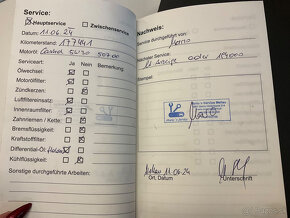 Service:
Hauptservice Zwischenservice
Datum: 11.06.24
Kilometerstand: 177441
Motoröl: Castrol 5W30 507.00
Serviceart: Ja Nein Bemerkung
Ölwechsel:
Ölfilter:
Motorfilter:
Zündkerzen:
Luftfiltereinsatz:
Innenraumfilter:
Zahnriemen / Kette:
Bremsflüssigkeit:
Kraftstofffilter:
Differential-Öl:
Kühlflüssigkeit:
Sonstige durchgeführte Arbeiten:
Nachweis:
Service durchgeführt von:
Nächster Service:
lt. Anzeige oder
Stempel:
11.06.24
Ort, Datum
Unterschrift